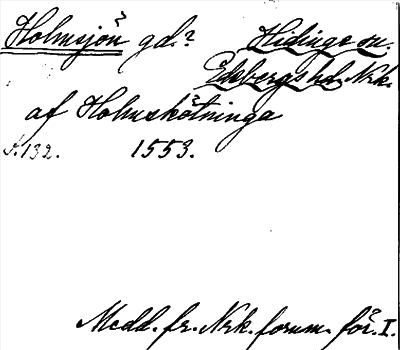 Holmsjön? gd.? Hidinge sn.
Edsbergs hd. Nrk.
af Holmskötninga
s. 132. 1553.
Medd. fr. Nrk. fornm. för. I.